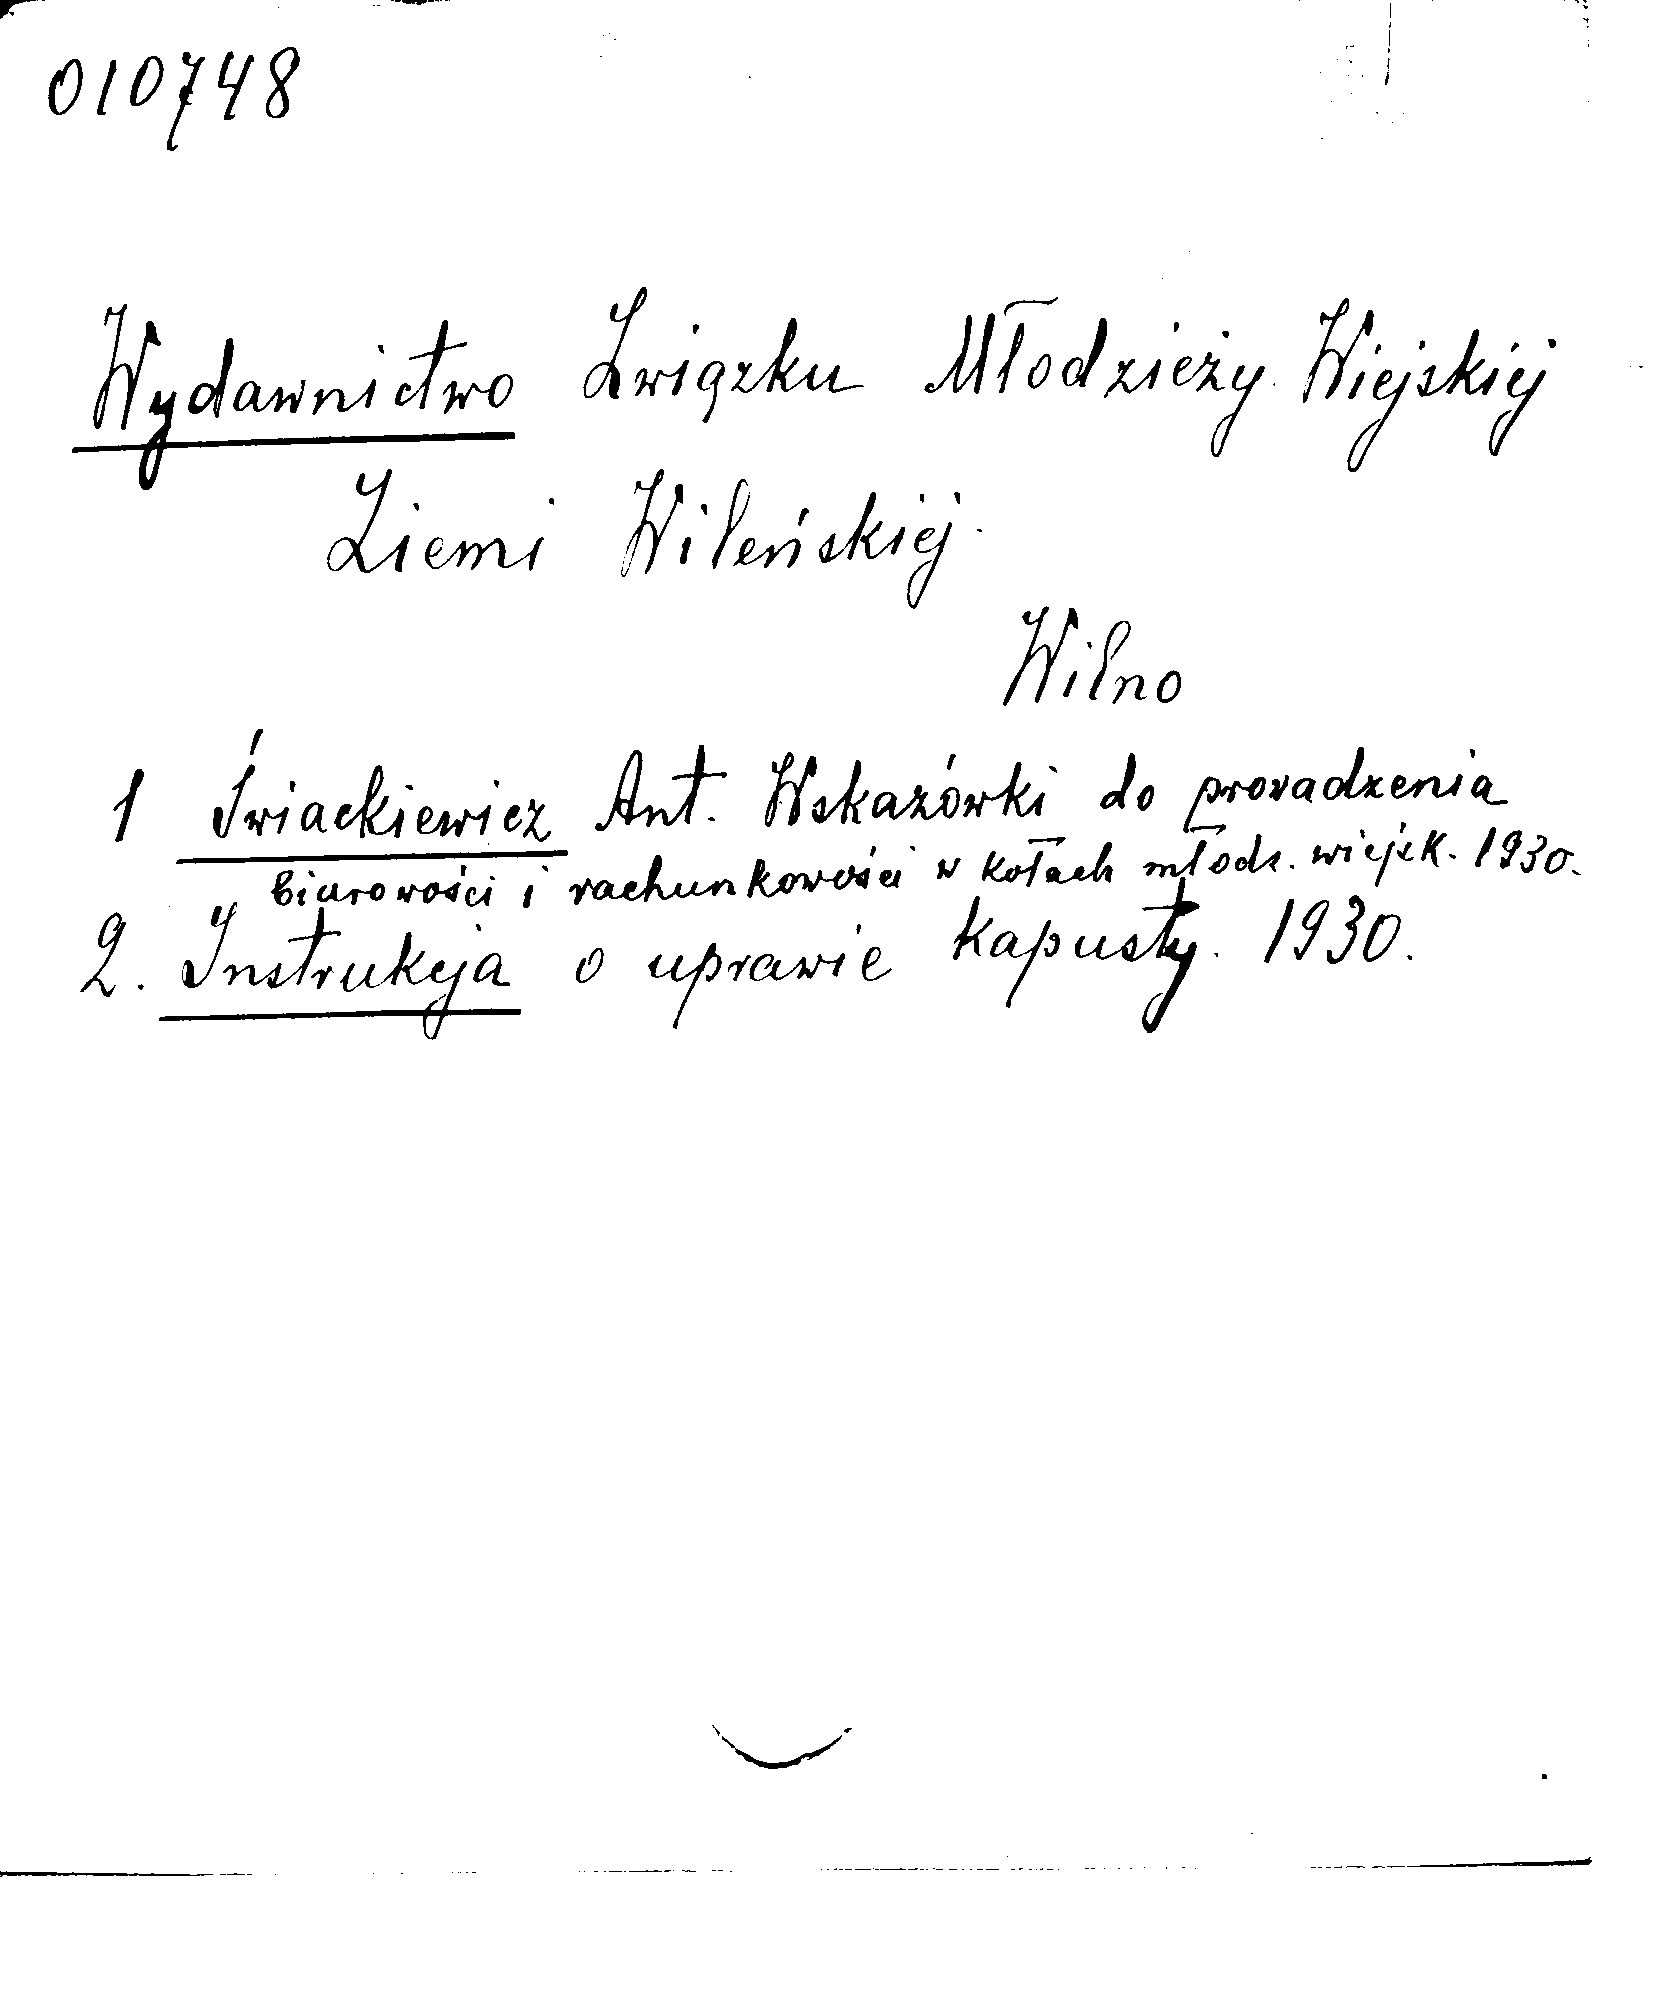 010748
Wydawnictwo Związku Młodzieży Wiejskiej
Ziemi Wileńskiej.
Wilno
1 Świackiewicz Ant. Wskazówki do prowadzenia
biurowości i rachunkowości w kołach młodz. wiejsk. 1930.
2. Instrukcja o uprawie kapusty. 1930.